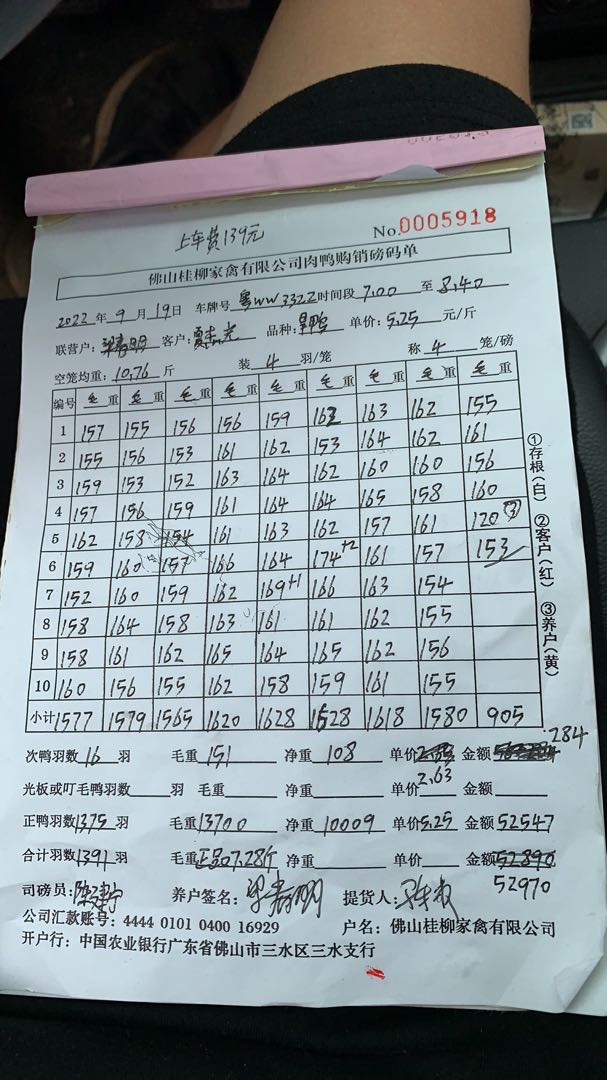 上车费139元
No.0005918
佛山桂柳家禽有限公司肉鸭购销磅码单
2022年9月19日 车牌号 粤WW3322 时间段 7,00 至 8,40
联营户: 客户: 品种: 单价: 5.25 元/斤
空笼均重: 10,76 斤 装 4 羽/笼 称 4 笼/磅
编号 毛重 毛重 毛重 毛重 毛重 毛重 毛重 毛重 毛重
1 157 155 156 156 159 162 163 162 155
2 155 156 153 161 162 153 164 162 161
3 159 153 152 163 164 162 160 160 156
4 157 156 159 161 164 164 165 158 160
5 162 158 154 161 163 162 157 161 120③
6 159 160 157 166 164 174+2 161 157 153
7 152 160 159 162 169+1 166 163 154
8 158 164 158 163 161 161 162 155
9 158 161 162 165 164 165 162 156
10 160 156 155 162 158 159 161 155
小计 1577 1579 1565 1620 1628 1628 1618 1580 905
①存根(白) ②客户(红) ③养户(黄)
284
次鸭羽数 16 羽 毛重 151 净重 108 单价 金额
2,63
光板或叮毛鸭羽数 羽 毛重 净重 单价 金额
正鸭羽数 1375 羽 毛重 13700 净重 10009 单价 5.25 金额 52547
合计羽数 1391 羽 毛重 正品7.28斤 净重 单价 金额 52890
52970
司磅员: 养户签名: 提货人:
公司汇款账号: 4444 0101 0400 16929 户名: 佛山桂柳家禽有限公司
开户行: 中国农业银行广东省佛山市三水区三水支行